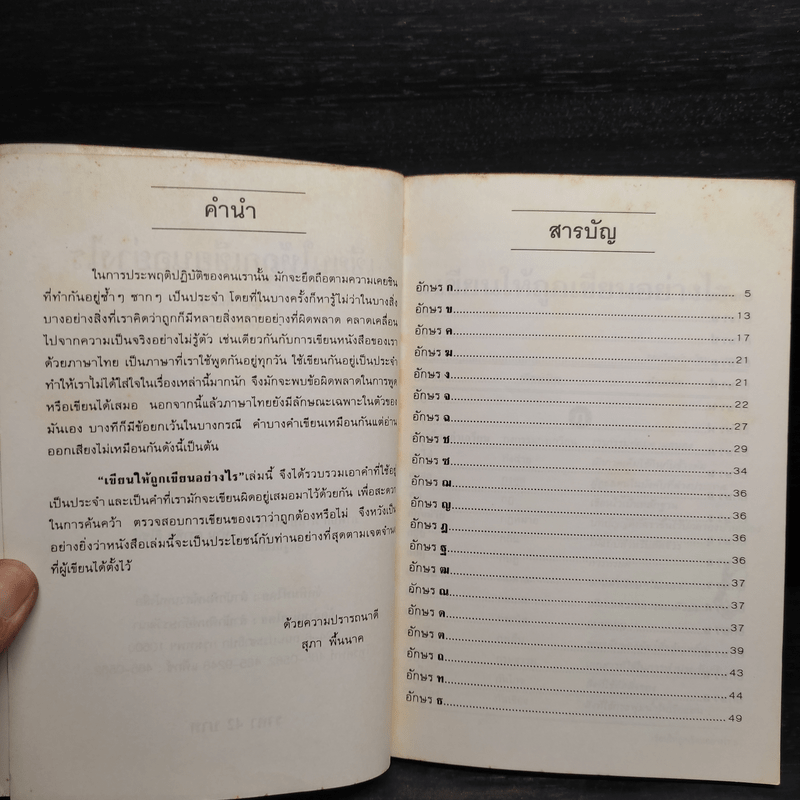 คำนำ
ในการประพฤติปฏิบัติของคนเรานั้น มักจะยึดถือตามความเคยชิน
ที่ทำกันอยู่ซ้ำๆ ซากๆ เป็นประจำ โดยที่ในบางครั้งก็หารู้ไม่ว่าในบางสิ่ง
บางอย่างสิ่งที่เราคิดว่าถูกก็มีหลายสิ่งหลายอย่างที่ผิดพลาด คลาดเคลื่อน
ไปจากความเป็นจริงอย่างไม่รู้ตัว เช่นเดียวกันกับการเขียนหนังสือของเรา
ด้วยภาษาไทย เป็นภาษาที่เราใช้พูดกันอยู่ทุกวัน ใช้เขียนกันอยู่เป็นประจำ
ทำให้เราไม่ได้ใส่ใจในเรื่องเหล่านี้มากนัก จึงมักจะพบข้อผิดพลาดในการพูด
หรือเขียนได้เสมอ นอกจากนี้แล้วภาษาไทยยังมีลักษณะเฉพาะในตัวของ
มันเอง บางทีก็มีข้อยกเว้นในบางกรณี คำบางคำเขียนเหมือนกันแต่อ่าน
ออกเสียงไม่เหมือนกันดังนี้เป็นต้น
"เขียนให้ถูกเขียนอย่างไร"เล่มนี้ จึงได้รวบรวมเอาคำที่ใช้อยู่
เป็นประจำ และเป็นคำที่เรามักจะเขียนผิดอยู่เสมอมาไว้ด้วยกัน เพื่อสะดวก
ในการค้นคว้า ตรวจสอบการเขียนของเราว่าถูกต้องหรือไม่ จึงหวังเป็น
อย่างยิ่งว่าหนังสือเล่มนี้จะเป็นประโยชน์กับท่านอย่างที่สุดตามเจตจำนง
ที่ผู้เขียนได้ตั้งไว้
ด้วยความปรารถนาดี
สุภา พื้นนาค
สารบัญ
อักษร ก....................5
อักษร ข....................13
อักษร ค....................17
อักษร ฆ....................21
อักษร ง....................21
อักษร จ....................22
อักษร ฉ....................27
อักษร ช....................29
อักษร ซ....................34
อักษร ฌ....................36
อักษร ญ....................36
อักษร ฎ....................36
อักษร ฐ....................36
อักษร ฒ....................37
อักษร ณ....................37
อักษร ด....................37
อักษร ต....................39
อักษร ถ....................43
อักษร ท....................44
อักษร ธ....................49